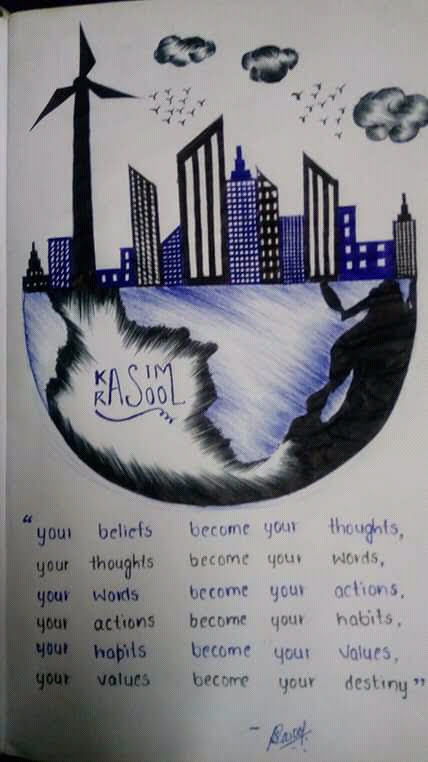 KASIM
RASOOL
“your beliefs become your thoughts,
your thoughts become your words,
your words become your actions,
your actions become your habits,
your habits become your values,
your values become your destiny”